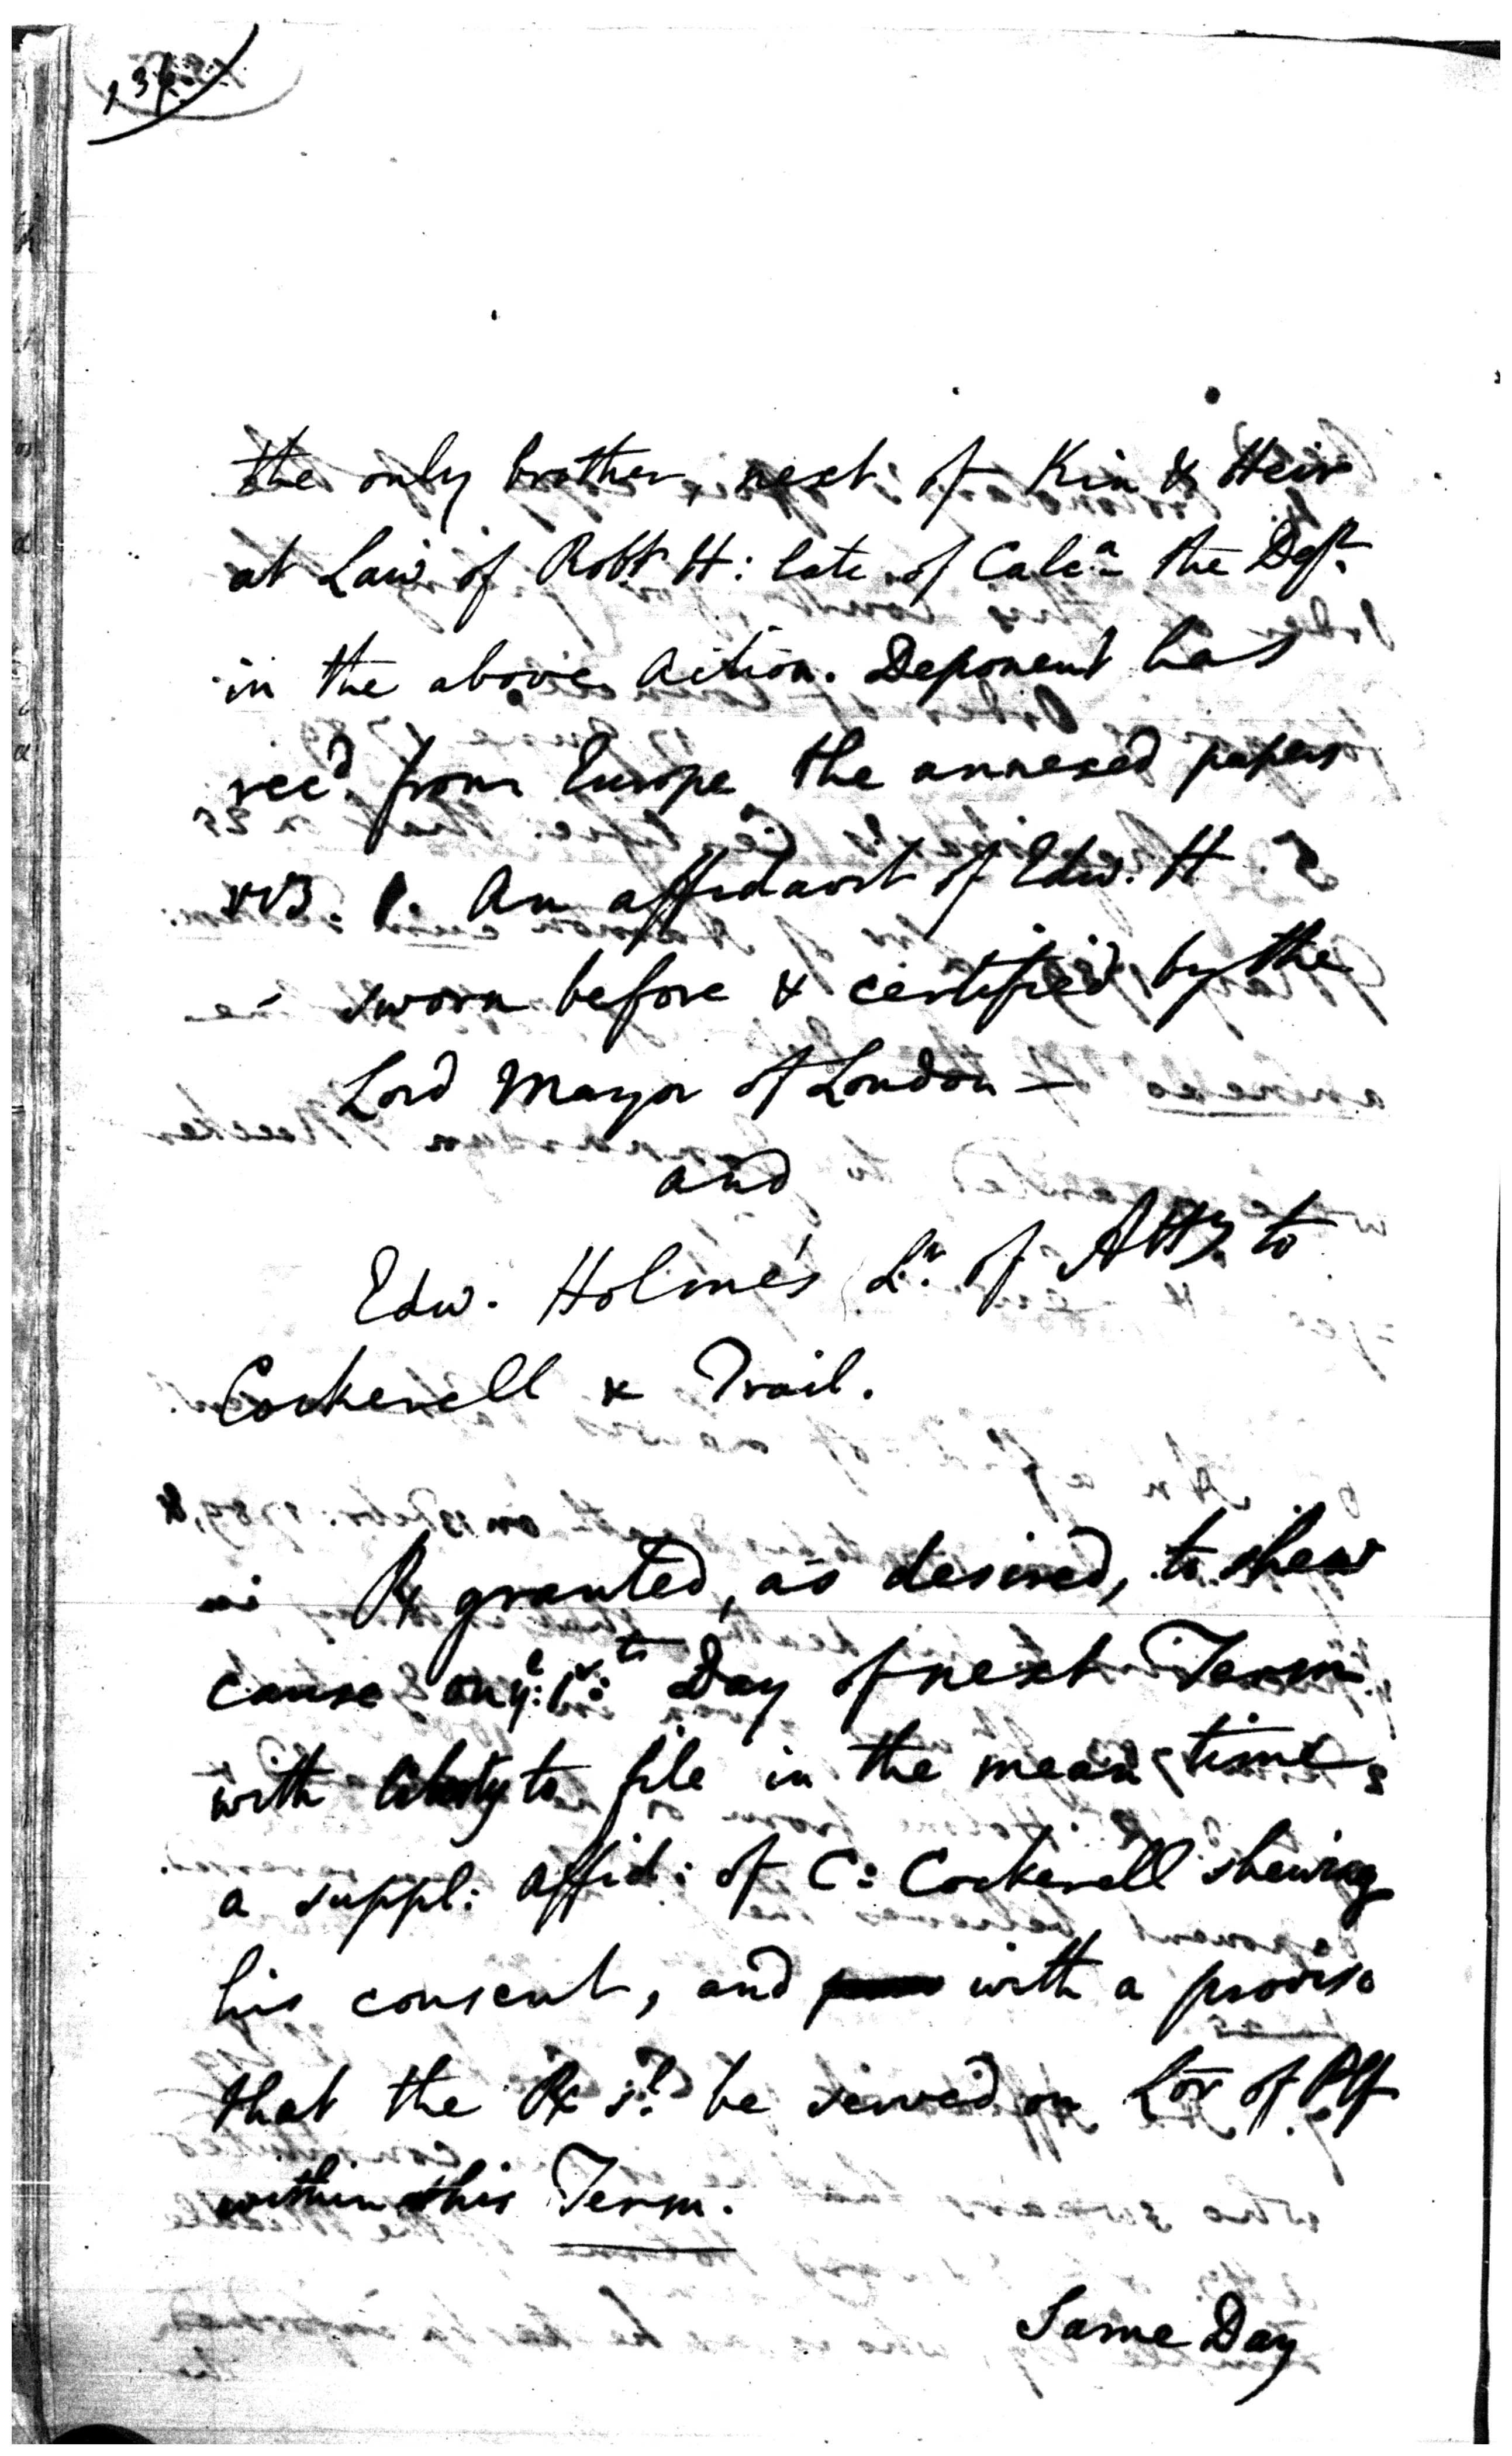 the only brother, next of Kin & Heir
at Law of Robt H: late of Calca the Deft
in the above Action. Deponent has
recd from Europe the annexed papers
viz. 1. An affidavit of Edw. H
sworn before & certified by the
Lord Mayor of London —
and
Edw. Holme's Lr. of Atty to
Cockerell & Trail.
R granted, as desired, to shew
cause on ye: 1st: Day of next Term
with liberty to file in the mean time
a suppl: affid: of C: Cockerell shewing
his consent, and with a proviso
that the R sd. be served on of Plf
within this Term.
Same Day